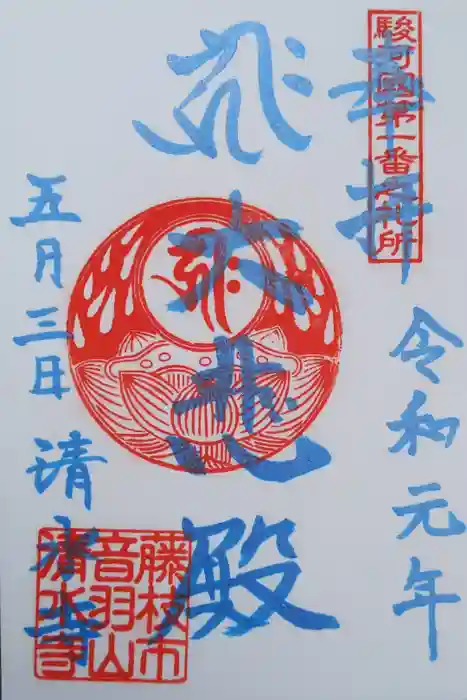 奉拝
駿河國第一番之札所
令和元年
大悲殿
五月三日
清水寺
藤枝市
音羽山
清水寺